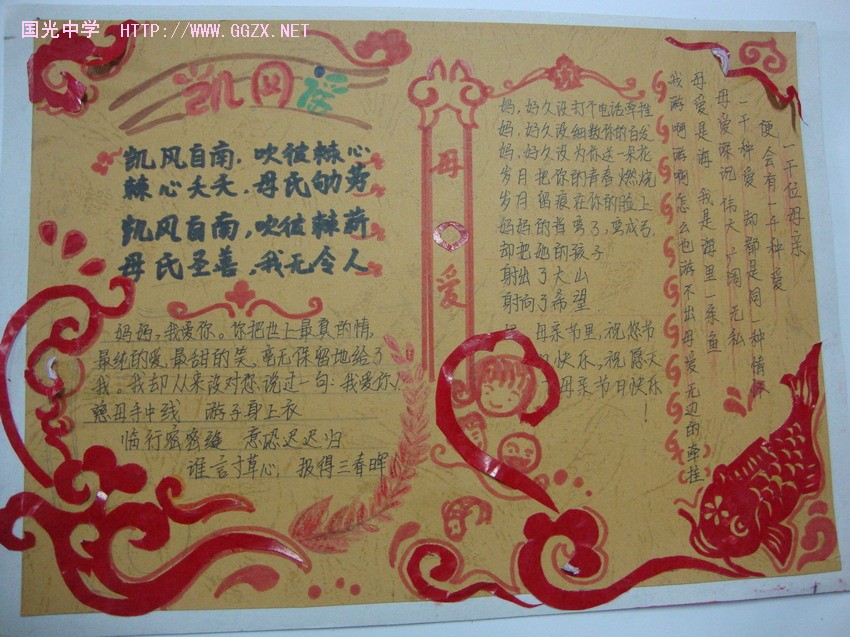 国光中学 HTTP://WWW.GGZX.NET
凯风
凯风自南，吹彼棘心
棘心夭夭，母氏劬劳
凯风自南，吹彼棘薪
母氏圣善，我无令人
妈妈，我爱你。你把世上最真的情，
最纯的爱，最甜的笑，毫无保留地给了
我。我却从来没对您说过一句：我爱你！
慈母手中线 游子身上衣
临行密密缝 意恐迟迟归
谁言寸草心，报得三春晖！
母爱
妈，好久没打个电话牵挂
妈，好久没细数你的白发
妈，好久没为你送一朵花
岁月把你的青春燃烧
岁月留痕在你的脸上
妈妈的背弯了，弯成弓，
却把她的孩子
射出了大山
射向了希望
母亲节里，祝您节
快乐，祝愿天
母亲节日快乐
！
一千位母亲
便会有一千种爱
一千种爱 却都是同一种情怀
母爱深沉 伟大 广阔 无私
母爱是海 我是海里一条鱼
我游啊游啊怎么也游不出母爱无边的牵挂